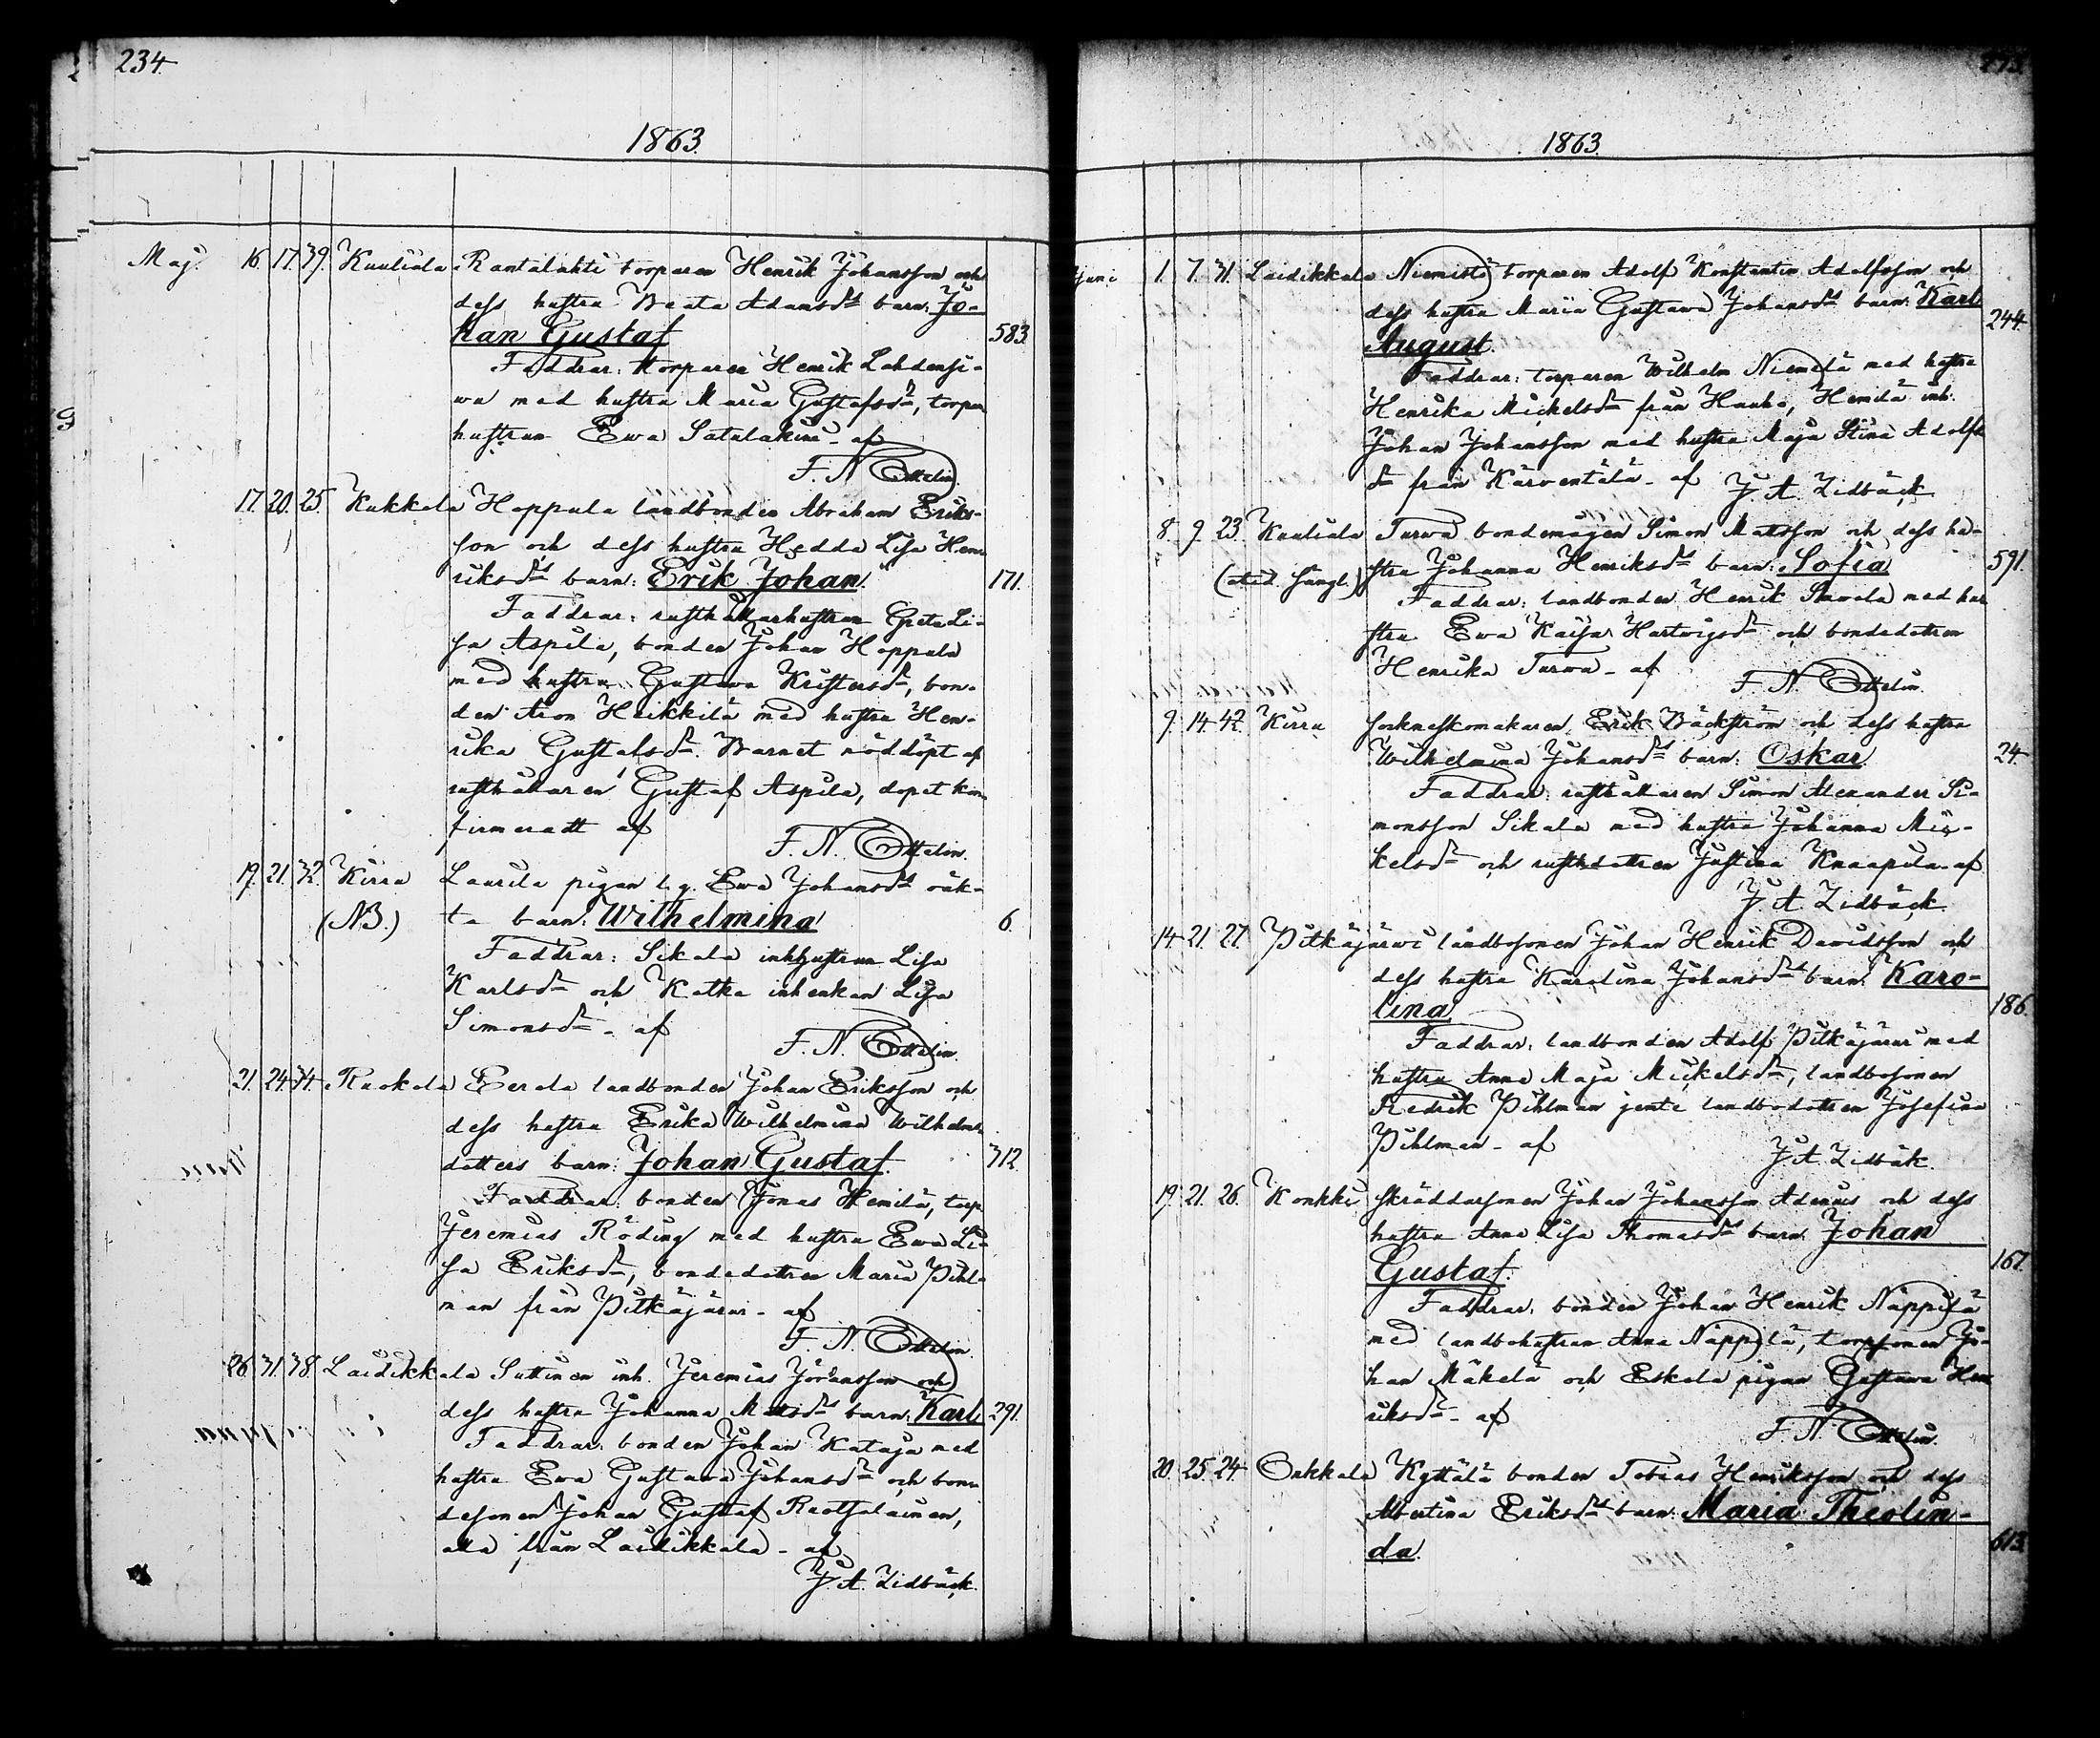 234.
1863.
Maj. 16. 17. 39. Kuuliala Rantalahti torparen Henrik Johansson och
dess hustru Beata Adamsdrs barn: Jo-
han Gustaf 583.
Faddrar: torparen Henrik Lahdensi-
wu med hustru Maria Gustafsdr, torpar
hustrun Ewa Satulakivi - af
F. N. Ottelin.
17. 20. 25. Kukkola Hoppula landbonden Abraham Eriks-
son och dess hustru Hedda Lisa Hen-
riksdrs barn: Erik Johan. 171.
Faddrar: rusthållarhustrun Greta Li-
sa Aspila, bonden Johan Hoppula
med hustru Gustava Kristersdr, bon-
den Aron Heikkilä med hustru Hen-
rika Gustafsdr. Barnet nöddöpt af
rusthållaren Gustaf Aspila, dopet kon-
firmeradt af
F. N. Ottelin.
19. 21. 32. Kirra Laurila pigan l.g. Ewa Johansdrs oäk-
(NB.) ta barn: Wilhelmina 6.
Faddrar: Sikala inhhustrun Lisa
Karlsdr och Katka inhenkan Lisa
Simonsdr - af
F. N. Ottelin.
21. 24. 34. Ruokola Eerola landbonden Johan Eriksson och
dess hustru Erika Wilhelmina Wilhelms-
dotters barn: Johan Gustaf. 312.
Faddrar: bonden Jonas Hemilä, torp.
Jeremias Röding med hustru Ewa Li-
sa Eriksdr, bondedottren Maria Pihl-
man från Pitkäjärvi - af
F. N. Ottelin.
26. 31. 38. Laidikkala Suttinen inh. Jeremias Johansson och
dess hustru Johanna Matsdrs barn: Karl 291.
Faddrar: bonden Johan Kataja med
hustru Ewa Gustava Johansdr och bon-
desonen Johan Gustaf Ruotsalainen,
alla från Laidikkala - af
J. A. Lidbäck.
1863.
Juni 1. 7. 31. Laidikkala Niemistö torparen Adolf Konstantin Adolfsson och
dess hustru Maria Gustava Johansdrs barn: Karl
August. 244.
Faddrar: torparen Wilhelm Niemelä med hustru
Henrika Mickelsdr från Hauho, Hemilä inh.
Johan Johansson med hustru Maja Stina Adolfs
dr från Kärventälä - af J. A. Lidbäck.
8. 9. 23. Kuuliala Turwa bondemågen Simon Matsson och dess hu-
stru Johanna Henriksdrs barn: Sofia 591.
Faddrar: landbonden Henrik Stuwola med hu-
stru Ewa Kajsa Hartwigsdr och bondedottren
Henrika Turwa - af
F. N. Ottelin.
9. 14. 42. Kirra sockneskomakaren Erik Bäckström och dess hustru
Wilhelmina Johansdrs barn: Oskar 24.
Faddrar: rusthållaren Simon Alexander Si-
monsson Sikala med hustru Johanna Mic-
kelsdr och rusthdottren Justina Knaapila - af
J. A. Lidbäck.
14. 21. 27. Pitkäjärwi landbosonen Johan Henrik Davidsson och
dess hustru Karolina Johansdrs barn: Karo-
lina 186.
Faddrar: landbonden Adolf Pitkäjärvi med
hustru Anna Maja Mickelsdr, landbosonen
Fredrik Pihlman jemte landbodottren Josefina
Pihlman - af
J. A. Lidbäck.
19. 21. 26. Konkki skräddarsonen Johan Johansson Adenius och dess
hustru Anna Lisa Thomasdrs barn: Johan
Gustaf. 167.
Faddrar: bonden Johan Henrik Näppilä
med landbohustrun Anna Näppilä, torpsonen Jo-
han Mäkelä och Eskola pigan Gustava Hen-
riksdr - af
F. N. Ottelin.
20. 25. 24. Onkkala Kyttälä bonden Tobias Henriksson och dess
Albertina Eriksdrs barn: Maria Theolin-
da. 613.